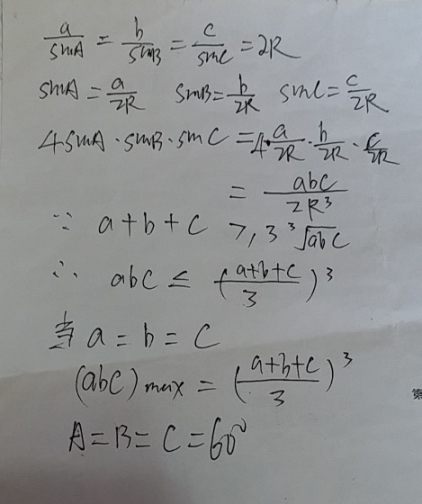 a/sinA = b/sinB = c/sinC = 2R
sinA = a/2R sinB = b/2R sinC = c/2R
4sinA·sinB·sinC = 4·a/2R·b/2R·c/2R
= abc/2R³
∵ a+b+c ≥ 3 ³√abc
∴ abc ≤ (a+b+c/3)³
当 a = b = c
(abc)max = (a+b+c/3)³
A = B = C = 60°
第